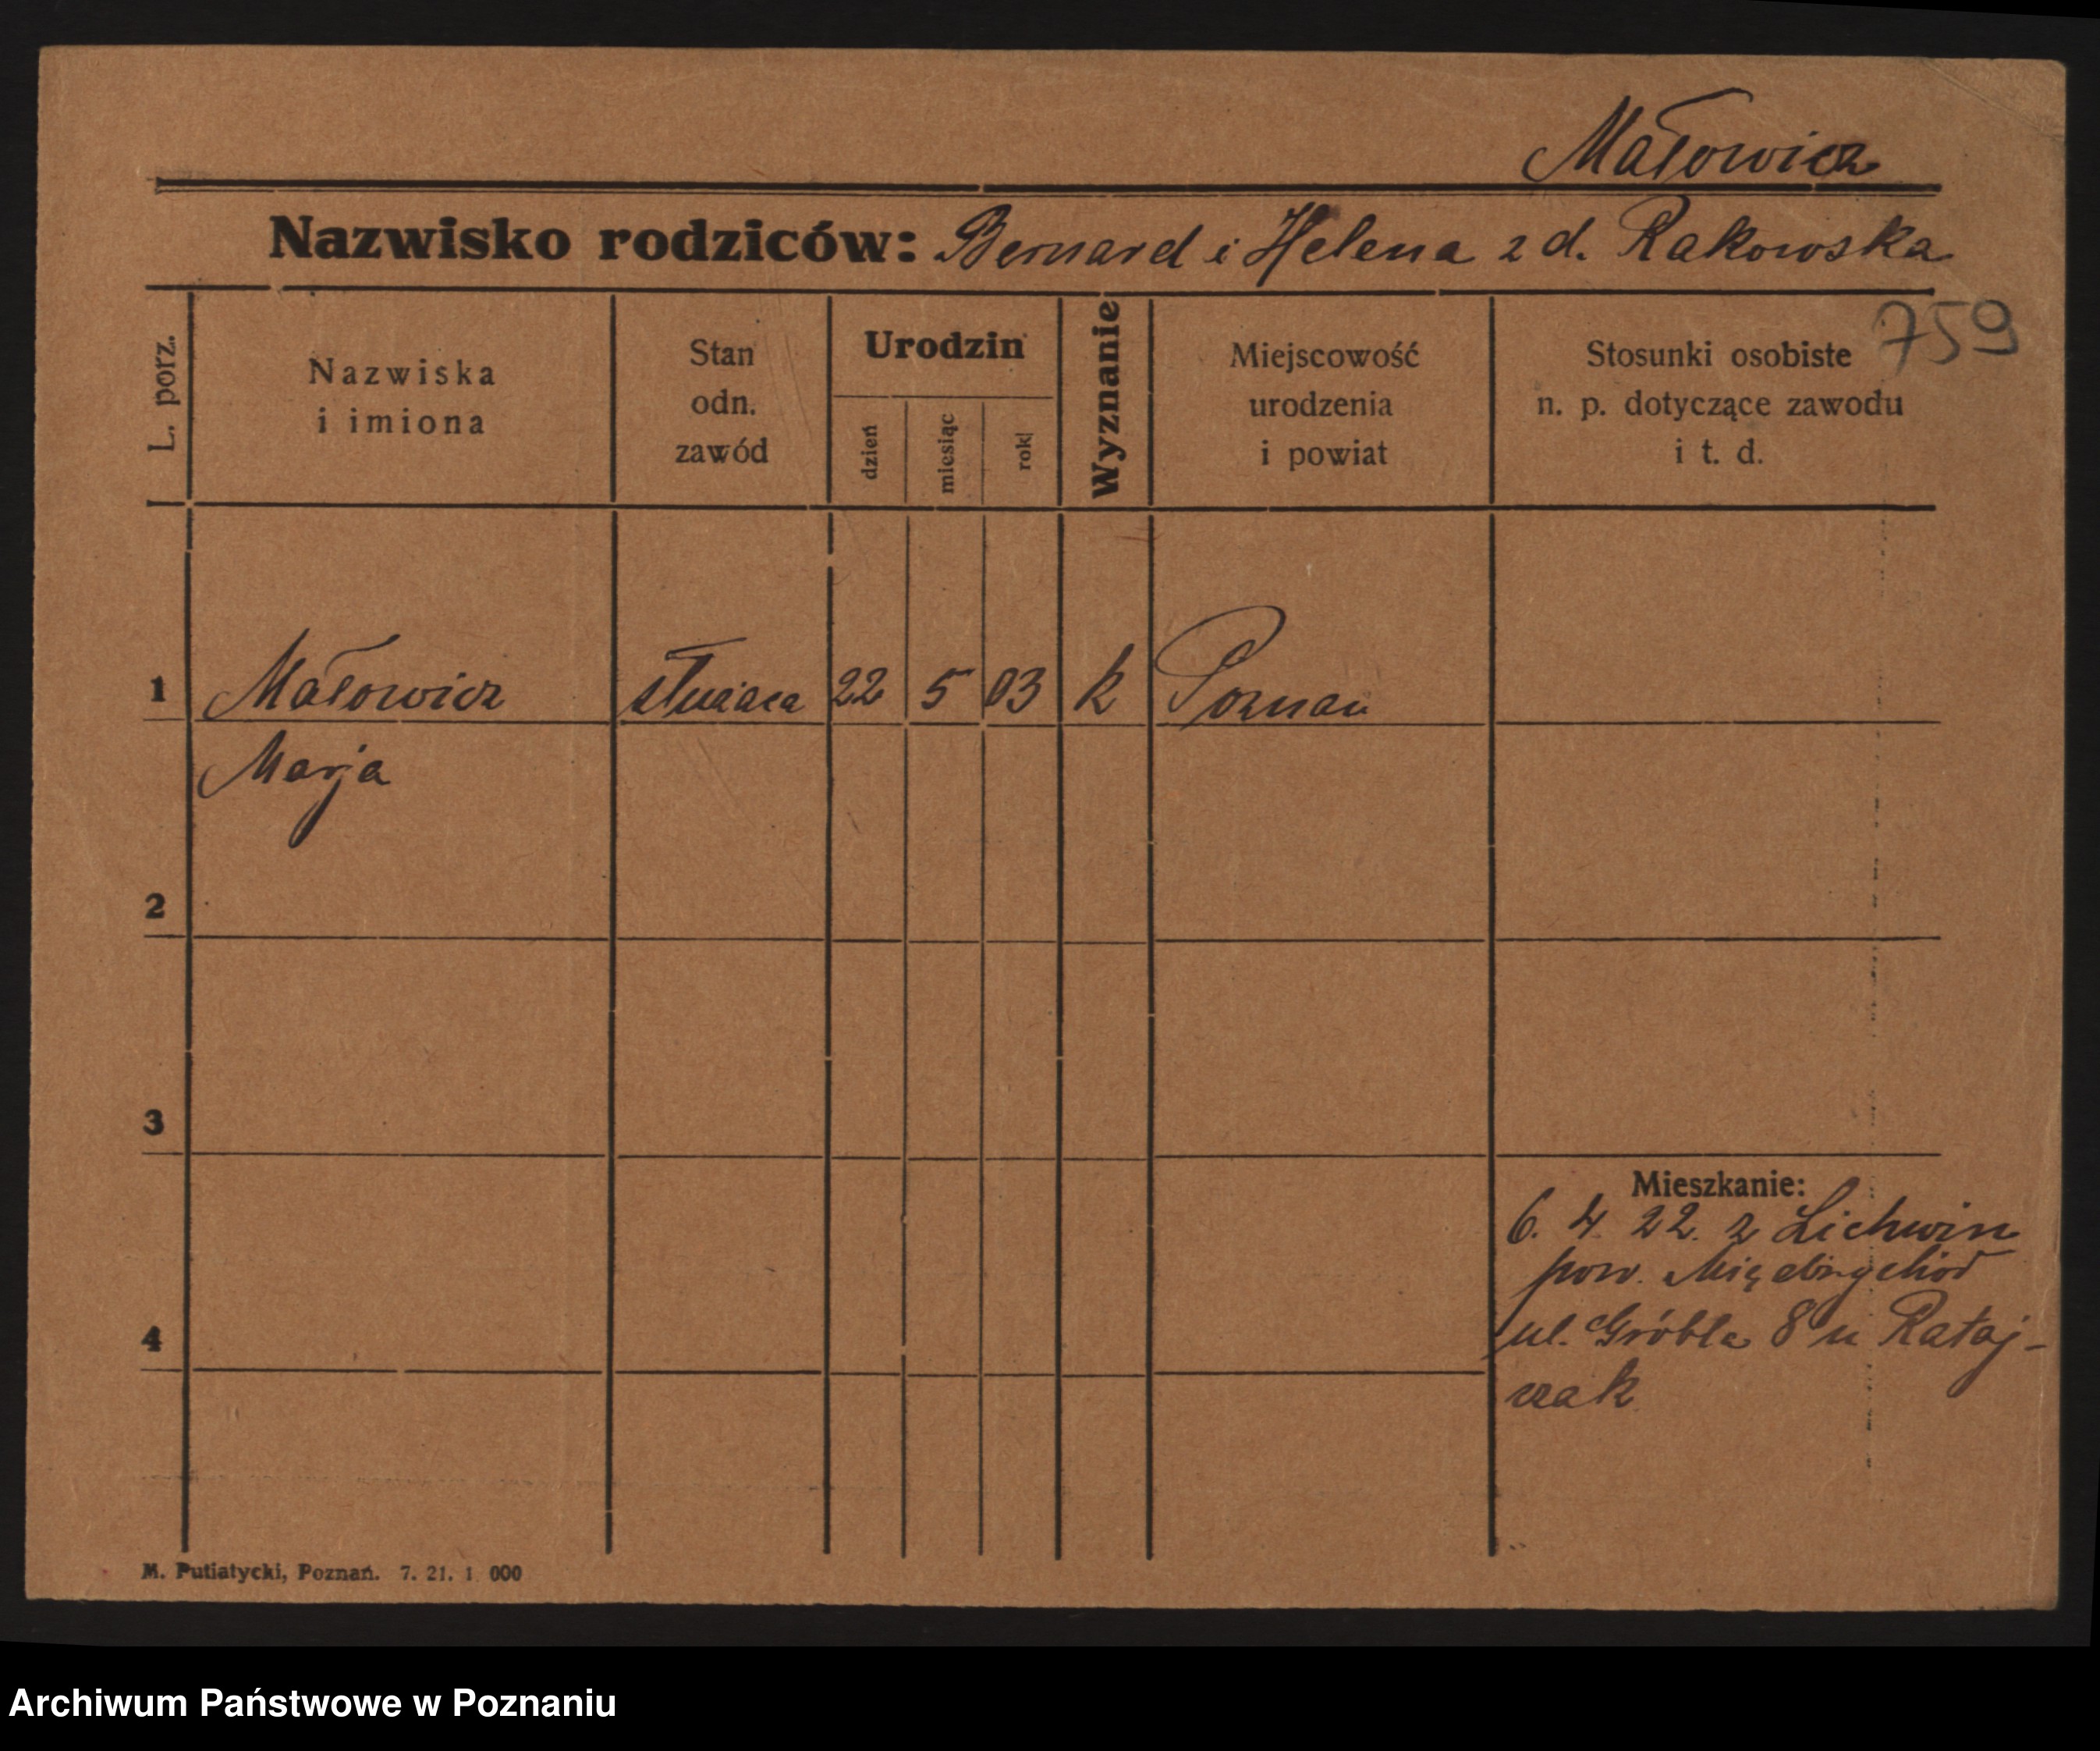 Małowicz
Nazwisko rodziców: Bernard i Helena z d. Rakowska
759
L. porz.
Nazwiska
i imiona
Stan
odn.
zawód
Urodzin
dzień
miesiąc
rok
Wyznanie
Miejscowość
urodzenia
i powiat
Stosunki osobiste
n. p. dotyczące zawodu
i t. d.
1 Małowicz służąca 22 5 03 k Poznań
Marja
2
3
Mieszkanie:
6. 4. 22. z Lichwin
pow. Międzychód
4
ul. Grobla 8 u Rataj-
czak
M. Putiatycki, Poznań. 7. 21. 1 000
Archiwum Państwowe w Poznaniu